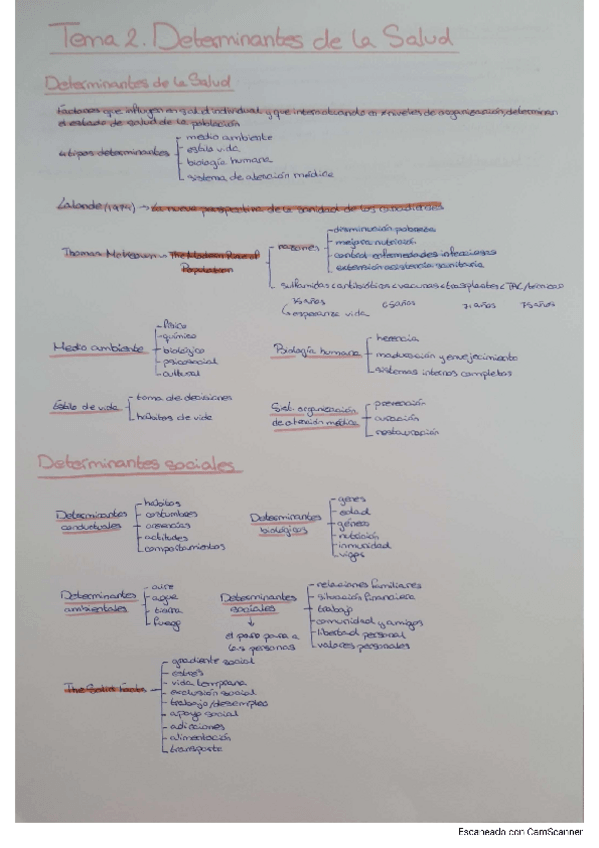 Tema 2. Determinantes de la Salud
Determinantes de la Salud
Factores que influyen en sal. d individual y que interactuando en niveles de organización, determinan
el estado de salud de la población
4 tipos determinantes
medio ambiente
estilo vida
biología humana
sistema de atención médica
Lalonde (1974) → La nueva perspectiva de la sanidad de los canadienses
Thomas McKeown → The Modern Rise of
Population
razones
disminución pobreza
mejora nutrición
control enfermedades infecciosas
extensión asistencia sanitaria
sulfamidas < antibióticos < vacunas < trasplantes < TAC/técnicas
35 años 65 años 71 años 75 años
↳ esperanza vida
Medio ambiente
físico
químico
biológico
psicosocial
cultural
Biología humana
herencia
maduración y envejecimiento
sistemas internos complejos
Estilo de vida
toma de decisiones
hábitos de vida
Sist. organización
de atención médica
prevención
curación
restauración
Determinantes sociales
Determinantes
conductuales
hábitos
costumbres
creencias
actitudes
comportamientos
Determinantes
biológicos
genes
edad
género
nutrición
inmunidad
vigor
Determinantes
ambientales
aire
agua
tierra
fuego
Determinantes
sociales
↓
el paso para a
las personas
relaciones familiares
situación financiera
trabajo
comunidad y amigos
libertad personal
valores personales
The Solid Facts
gradiente social
estrés
vida temprana
exclusión social
trabajo/desempleo
apoyo social
adicciones
alimentación
transporte
Escaneado con CamScanner